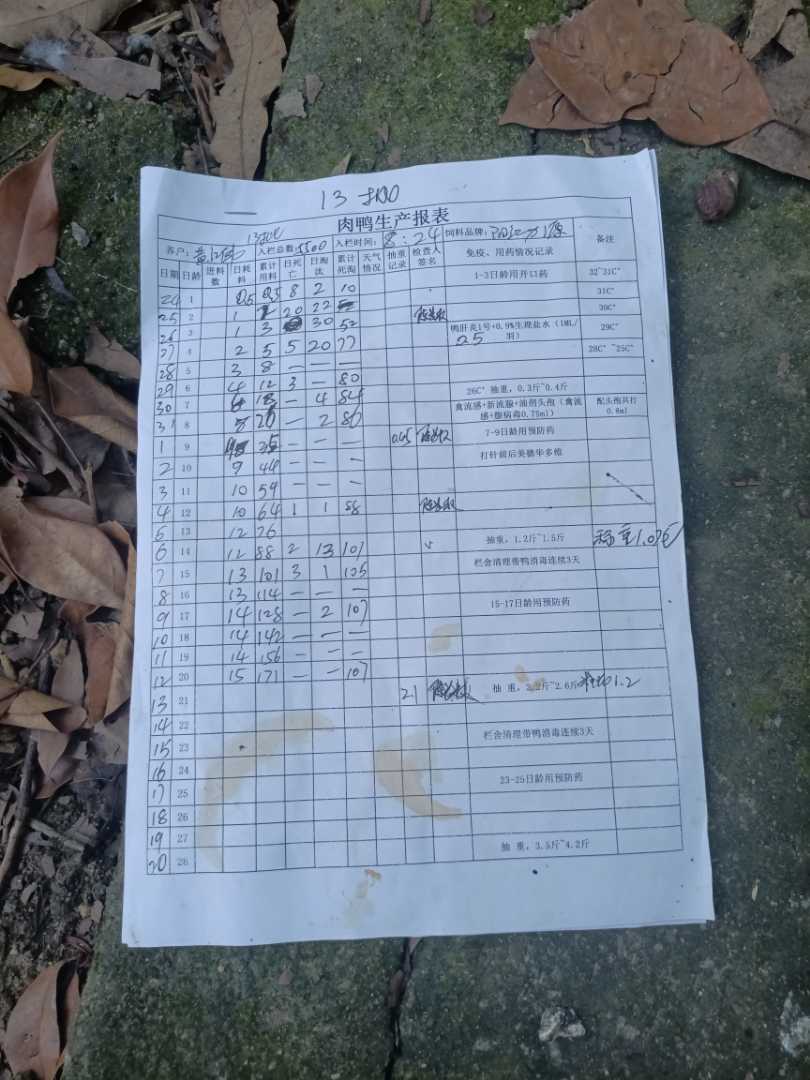 13批
肉鸭生产报表
13批
客户: 入栏总数:5500 入栏时间:8:24 饲料品牌:
日期 日龄 进料数 日耗料 累计用料 日死亡 日淘汰 累计死淘 天气情况 抽重记录 检查人签名 免疫、用药情况记录 备注
24 1 0.5 0.5 8 2 10 1-3日龄用开口药 32~31C°
25 2 1 20 22 31C°
26 3 1 3 30 52 30C°
27 4 2 5 5 20 77 鸭肝炎1号+0.9%生理盐水(1ML/羽) 0.5 29C°
28 5 3 8 — — — 28C°~25C°
29 6 4 12 3 — 80
30 7 6 18 — 4 84 26C° 抽重,0.3斤~0.4斤
31 8 — 2 86 禽流感+新流腺+油剂头孢(禽流感+腺病毒0.75ml) 配头孢共打0.8ml
1 9 35 — — — 0.45 7-9日龄用预防药
2 10 9 44 — — — 打针前后美德华多维
3 11 10 54 — — —
4 12 10 64 1 1 88
5 13 12 76
6 14 12 88 2 13 101 抽重,1.2斤~1.5斤 称重1.07
7 15 13 101 3 1 105 栏舍清理带鸭消毒连续3天
8 16 13 114 — — —
9 17 14 128 — 2 107 15-17日龄用预防药
10 18 14 142 — — —
11 19 14 156 — — —
12 20 15 171 — — 107
13 21 2.1 抽重,2.2斤~2.6斤 1.2
14 22
15 23 栏舍清理带鸭消毒连续3天
16 24
17 25 23-25日龄用预防药
18 26
19 27
20 28 抽重,3.5斤~4.2斤